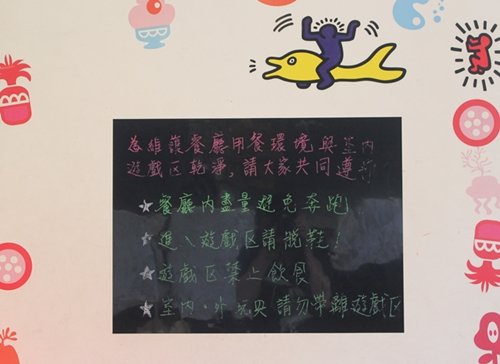 為維護餐廳用餐環境與室內
遊戲区乾淨,請大家共同遵守
★餐廳內盡量避免奔跑
★進入遊戲区請脫鞋!
★遊戲区禁止飲食
★室內、外玩具請勿帶離遊戲区